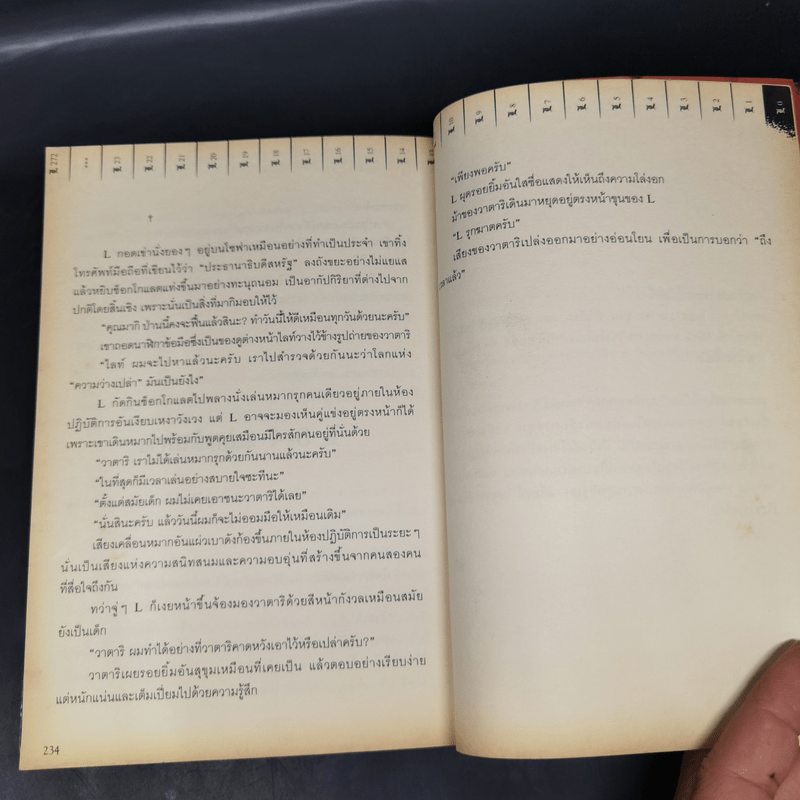 L 272
***
L 23
L 22
L 21
L 20
L 19
L 18
L 17
L 16
L 15
L 14
†
L กอดเข่านั่งยองๆ อยู่บนโซฟาเหมือนอย่างที่ทำเป็นประจำ เขาทิ้ง
โทรศัพท์มือถือที่เขียนไว้ว่า “ประธานาธิบดีสหรัฐ” ลงถังขยะอย่างไม่แยแส
แล้วหยิบช็อกโกแลตแท่งขึ้นมาอย่างทะนุถนอม เป็นอากัปกิริยาที่ต่างไปจาก
ปกติโดยสิ้นเชิง เพราะนั่นเป็นสิ่งที่มากิมอบให้ไว้
“คุณมากิ ป่านนี้คงจะฟื้นแล้วสินะ? ทำวันนี้ให้ดีเหมือนทุกวันด้วยนะครับ”
เขาถอดนาฬิกาข้อมือซึ่งเป็นของดูต่างหน้าไลท์วางไว้ข้างรูปถ่ายของวาตาริ
“ไลท์ ผมจะไปหาแล้วนะครับ เราไปสำรวจด้วยกันนะว่าโลกแห่ง
“ความว่างเปล่า” มันเป็นยังไง”
L กัดกินช็อกโกแลตไปพลางนั่งเล่นหมากรุกคนเดียวอยู่ภายในห้อง
ปฏิบัติการอันเงียบเหงาวังเวง แต่ L อาจจะมองเห็นคู่แข่งอยู่ตรงหน้าก็ได้
เพราะเขาเดินหมากไปพร้อมกับพูดคุยเสมือนมีใครสักคนอยู่ที่นั่นด้วย
“วาตาริ เราไม่ได้เล่นหมากรุกด้วยกันนานแล้วนะครับ”
“ในที่สุดก็มีเวลาเล่นอย่างสบายใจซะทีนะ”
“ตั้งแต่สมัยเด็ก ผมไม่เคยเอาชนะวาตาริได้เลย”
“นั่นสินะครับ แล้ววันนี้ผมก็จะไม่ออมมือให้เหมือนเดิม”
เสียงเคลื่อนหมากอันแผ่วเบาดังก้องขึ้นภายในห้องปฏิบัติการเป็นระยะๆ
นั่นเป็นเสียงแห่งความสนิทสนมและความอบอุ่นที่สร้างขึ้นจากคนสองคน
ที่สื่อใจถึงกัน
ทว่าจู่ๆ L ก็เงยหน้าขึ้นจ้องมองวาตาริด้วยสีหน้ากังวลเหมือนสมัย
ยังเป็นเด็ก
“วาตาริ ผมทำได้อย่างที่วาตาริคาดหวังเอาไว้หรือเปล่าครับ?”
วาตาริเผยรอยยิ้มอันสุขุมเหมือนที่เคยเป็น แล้วตอบอย่างเรียบง่าย
แต่หนักแน่นและเต็มเปี่ยมไปด้วยความรู้สึก
234
L 10
L 9
L 8
L 7
L 6
L 5
L 4
L 3
L 2
L 1
L 0
“เพียงพอครับ”
L ผุดรอยยิ้มอันใสซื่อแสดงให้เห็นถึงความโล่งอก
ม้าของวาตาริเดินมาหยุดอยู่ตรงหน้าขุนของ L
“L รุกฆาตครับ”
เสียงของวาตาริเปล่งออกมาอย่างอ่อนโยน เพื่อเป็นการบอกว่า “ถึง
เวลาแล้ว”